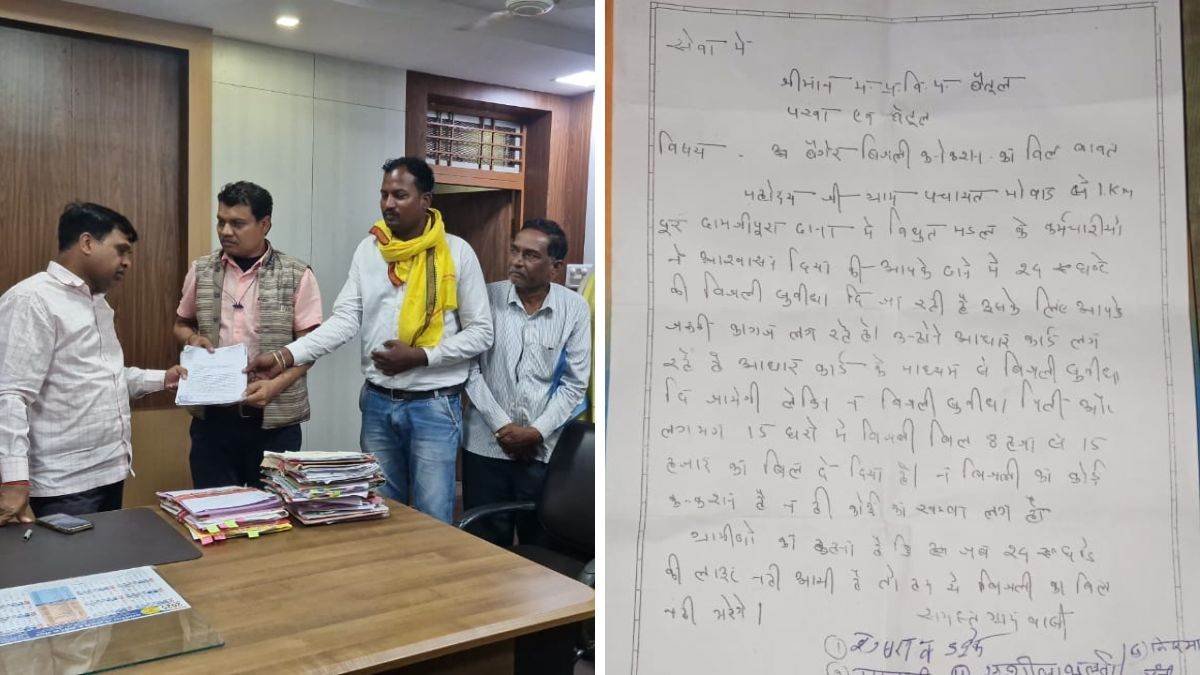 सेवा मे
श्रीमान म. प्र. वि. म. बैतूल
विषय - बैगेर बिजली कनेक्शन का बिल बाबत
महोदय जी ग्राम पंचायत मोवाड से 1 Km
दूर दामजीपूरा ढाना मे विधुत मडल के कर्मचारीयो
ने आश्वासन दिया की आपके ढाने मे 24 घण्टे
की बिजली सुवीधा दि जा रही है इसके लिए आपके
जरुरी कागज लग रहे है। उन्होने आधार कार्ड लग
रहे है आधार कार्ड के माध्यम से बिजली सुवीधा
दि जायेगी लेकिन न बिजली सुवीधा मिली और
लगभग 15 घरो मे बिजली बिल 8 हजार से 15
हजार का बिल दे दिया है। न बिजली का कोई
कनेक्शन है न ही कोई का खम्बा लगा है।
ग्रामीणो का कहना है कि जब 24
की लाईट नही आयी है तो हम ये बिजली का बिल
नही भरेगे।
समस्त ग्राम वासी